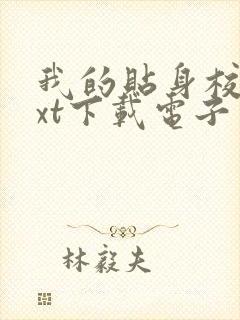 我的貼身校
xt下載電子
林毅夫